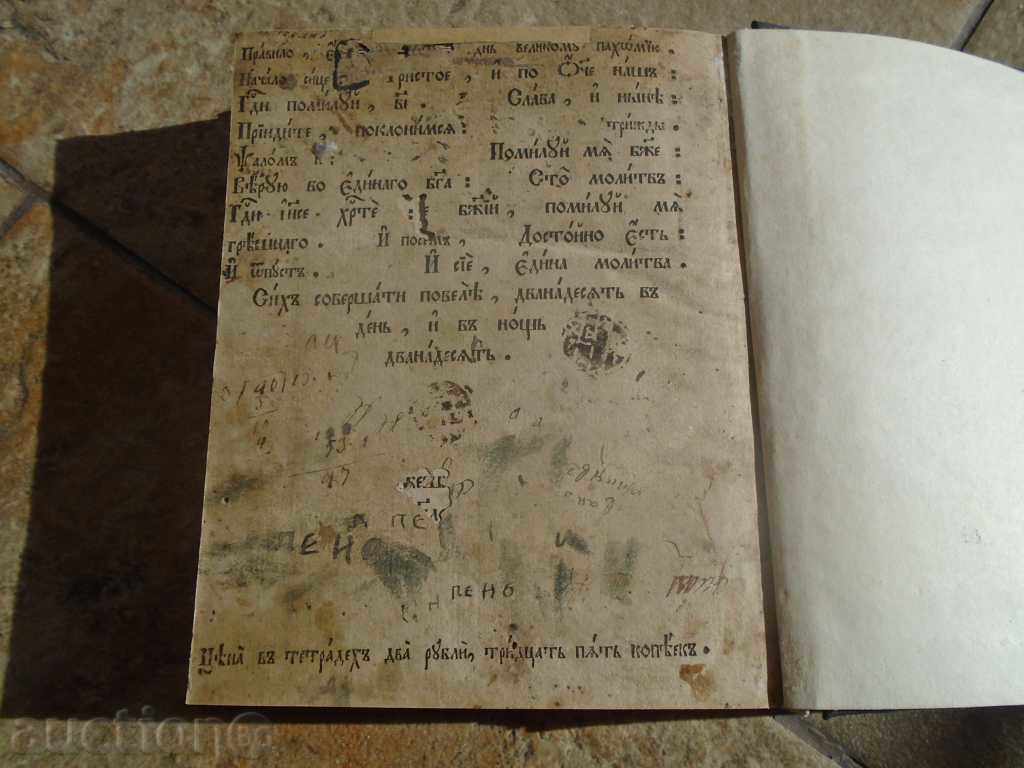 Пра́вило,
дн҃ь великомꙋ пахѡ́мїю.
Нача́ло си́це ристое, и҆ по Ѻ҆́ч҃е на́шъ:
Гд҇и поми́лꙋй, в҃і. Сла́ва, и҆ ны́нѣ:
Прїиди́те, поклони́мсѧ: три́жды.
Ѱало́мъ н҃: Поми́лꙋй мѧ̀ бж҃е:
Вѣ́рꙋю во є҆ди́наго бг҃а: Сто̀ моли́твъ:
Гд҇и і҆и҃се хрт҇ѐ бж҃їй, поми́лꙋй мѧ̀
грѣ́шнаго. И҆ посе́мъ, Досто́йно є҆́сть:
И҆ ѿпꙋ́стъ. И҆ сїѐ, є҆ди́на моли́тва.
Си́хъ соверша́ти повелѣ̀, двана́десѧть въ
де́нь, и҆ въ но́щь
двана́десѧть.
93
ПЕ
ПЕНО
ПЕНО
Цѣна̀ въ тетра́дехъ два̀ рꙋблѝ, три́дцать пѧ́ть копѣ́екъ.
auction.bg